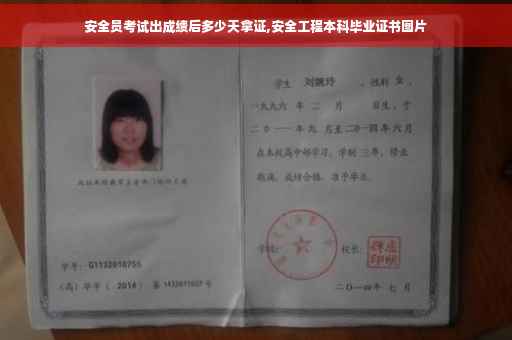 安全员考试出成绩后多少天拿证,安全工程本科毕业证书图片
学生 刘婉玲 ，性别 女 ，
一九九六 年 二 月 日生，于
二〇一一 年 九 月至 二〇一四 年 六 月
在本校高中部学习，学制 三 年，修业
期满，成绩合格，准予毕业。
学校： 校长：
学号： G1132010755
（高）毕字（ 2014 ）第 1432011027 号
二〇一四年 七 月